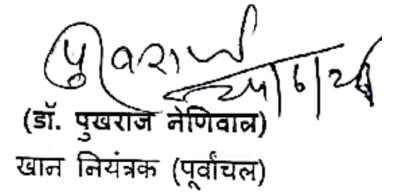 (डॉ. पुखराज नेणिवाल)
खान नियंत्रक (पूर्वांचल)